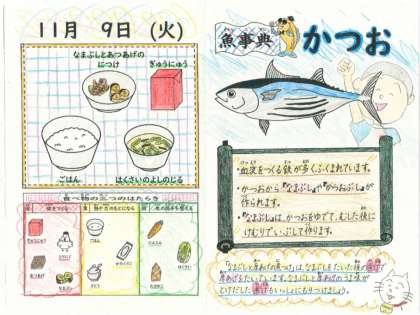 11月 9日 (火)
なまぶしとあつあげの
につけ
ぎゅうにゅう
ごはん
はくさいのよしのじる
食べ物の三つのはたらき
ごはん
魚事典
かつお
・血液をつくる鉄が多くふくまれています。
・かつおから「なまぶし」や「かつおぶし」が
作られます。
・「なまぶし」は、かつおをゆでて、むした後に
けむりでいぶして作ります。
「なまぶしと厚あげの煮つけ」は、なまぶしをたいた後の煮汁で
厚あげをたいています。なまぶしと厚あげのうま味が
とけだした煮汁もいっしょにもりつけましょう。